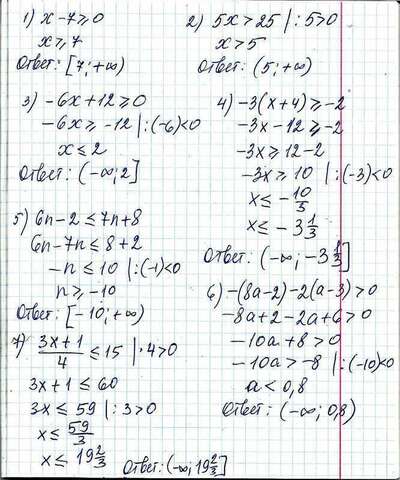 1) x-7≥0
x≥7
Ответ: [7;+∞)
2) 5x>25 |:5>0
x>5
Ответ: (5;+∞)
3) -6x+12≥0
-6x≥-12 |:(-6)<0
x≤2
Ответ: (-∞;2]
4) -3(x+4)≥-2
-3x-12≥-2
-3x≥12-2
-3x≥10 |:(-3)<0
x≤-10/3
x≤-3 1/3
Ответ: (-∞;-3 1/3]
5) 6n-2≤7n+8
6n-7n≤8+2
-n≤10 |:(-1)<0
n≥-10
Ответ: [-10;+∞)
6) -(8a-2)-2(a-3)>0
-8a+2-2a+6>0
-10a+8>0
-10a>-8 |:(-10)<0
a<0,8
Ответ: (-∞;0,8)
7) (3x+1)/4≤15 |·4>0
3x+1≤60
3x≤59 |:3>0
x≤59/3
x≤19 2/3
Ответ: (-∞;19 2/3]